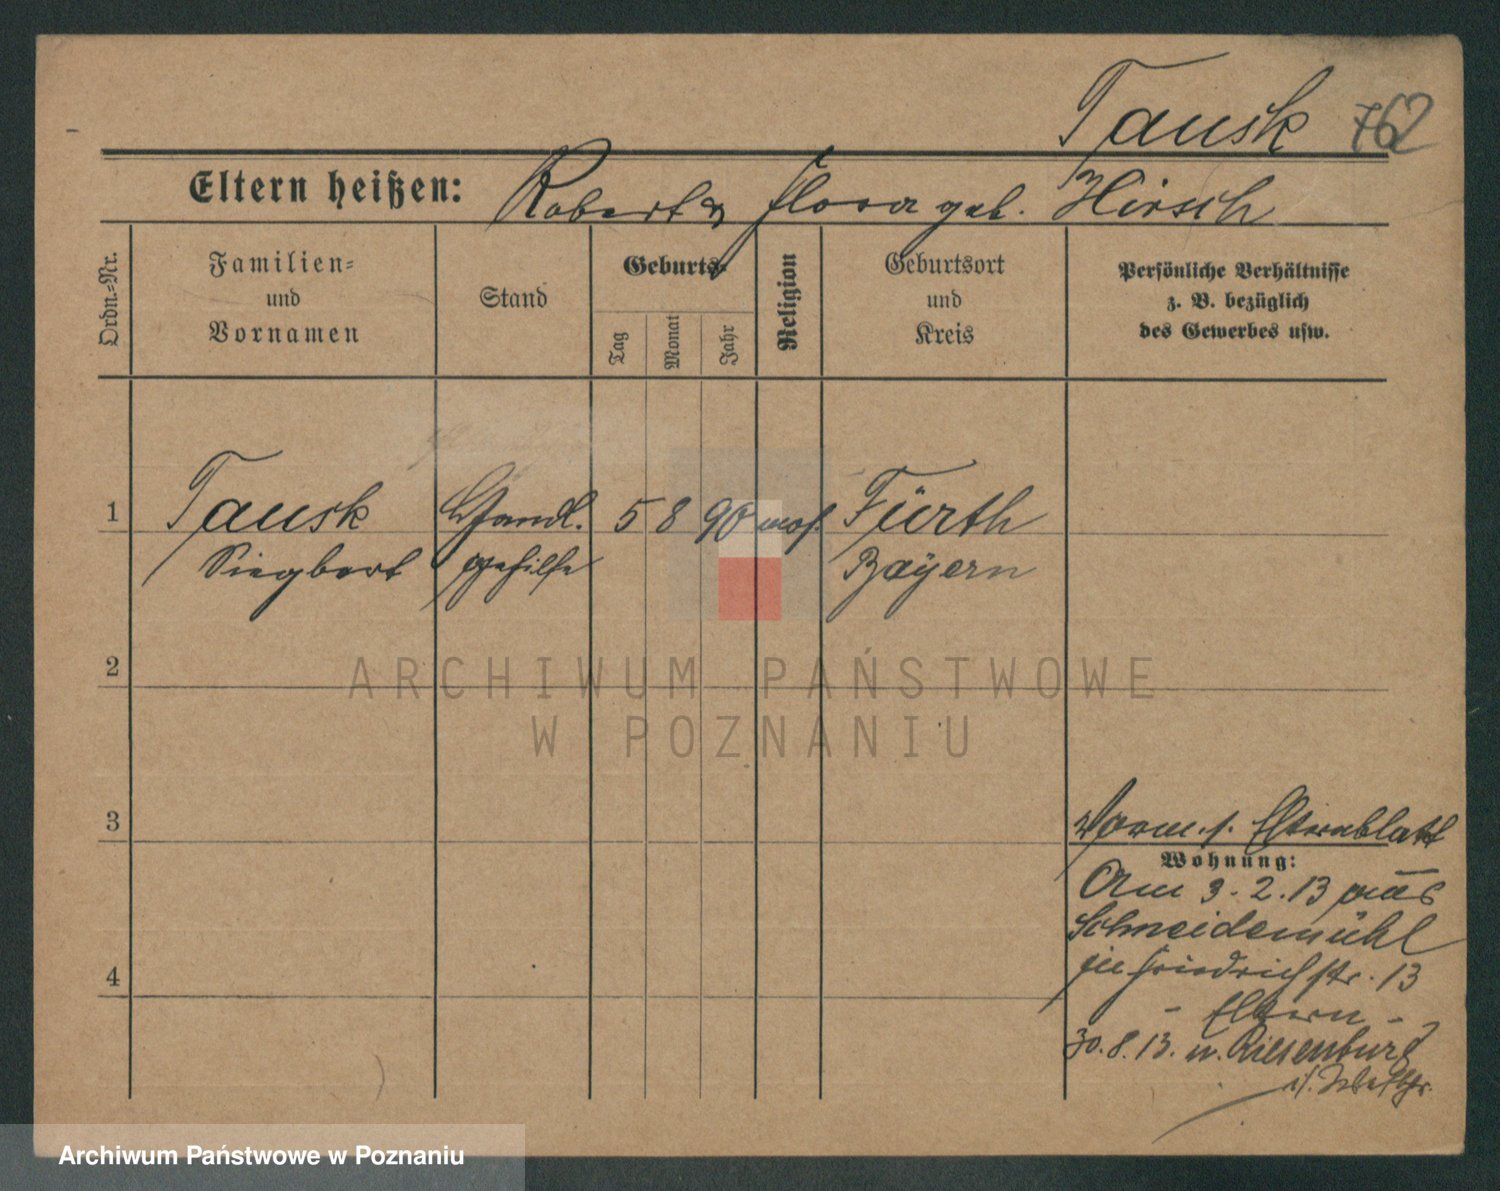 Tausk 762
Eltern heißen: Robert & Flora geb. Hirsch
Ordn.-Nr.
Familien-
und
Vornamen
Stand
Geburts-
Tag
Monat
Jahr
Religion
Geburtsort
und
Kreis
Persönliche Verhältnisse
z. B. bezüglich
des Gewerbes usw.
1 Tausk Handl. 5 8 90 mos. Fürth
Siegbert gehilfe Bayern
2
ARCHIWUM PAŃSTWOWE
W POZNANIU
3
Vorm. s. Elternblatt
Wohnung:
Am 3.2.13 aus
Schneidemühl
4
Friedrichstr. 13
- Eltern -
30.8.13. n. Riesenburg
i/. Westpr.
Archiwum Państwowe w Poznaniu